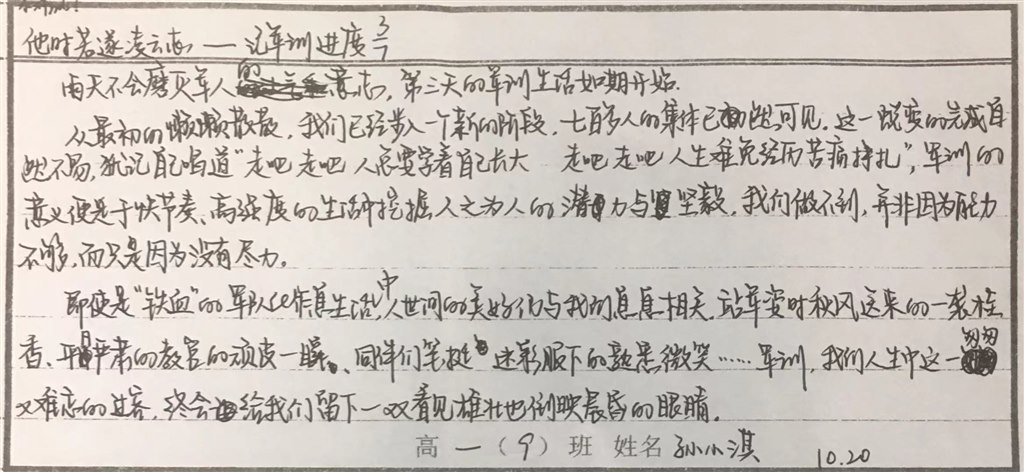 他时若遂凌云志——记军训进度3/7
雨天不会磨灭军人的意志，第三天的军训生活如期开始.
从最初的懒懒散散，我们已经步入一个新的阶段，七百多人的集体已凸可见。这一蜕变的完成自
然不易，犹记自己唱道"走吧 走吧 人总要学着自己长大 走吧 走吧 人生难免经历苦痛挣扎"，军训的
意义便是于快节奏、高强度的生活中挖掘人之为人的潜力与坚毅。我们做不到，并非因为能力
不够，而只是因为没有尽力。
即使是"铁血"的军队化作息生活中，人世间的美好仍与我们息息相关。站军姿时秋风送来的一袭桂
香、平日严肃的教官的顽皮一瞬、同伴们笔挺迷彩服下的熟悉微笑……军训，我们人生中这一匆匆
又难忘的过客，终会给我们留下一双看见雄壮也倒映晨昏的眼睛。
高一（9）班 姓名 孙小淇 10.20